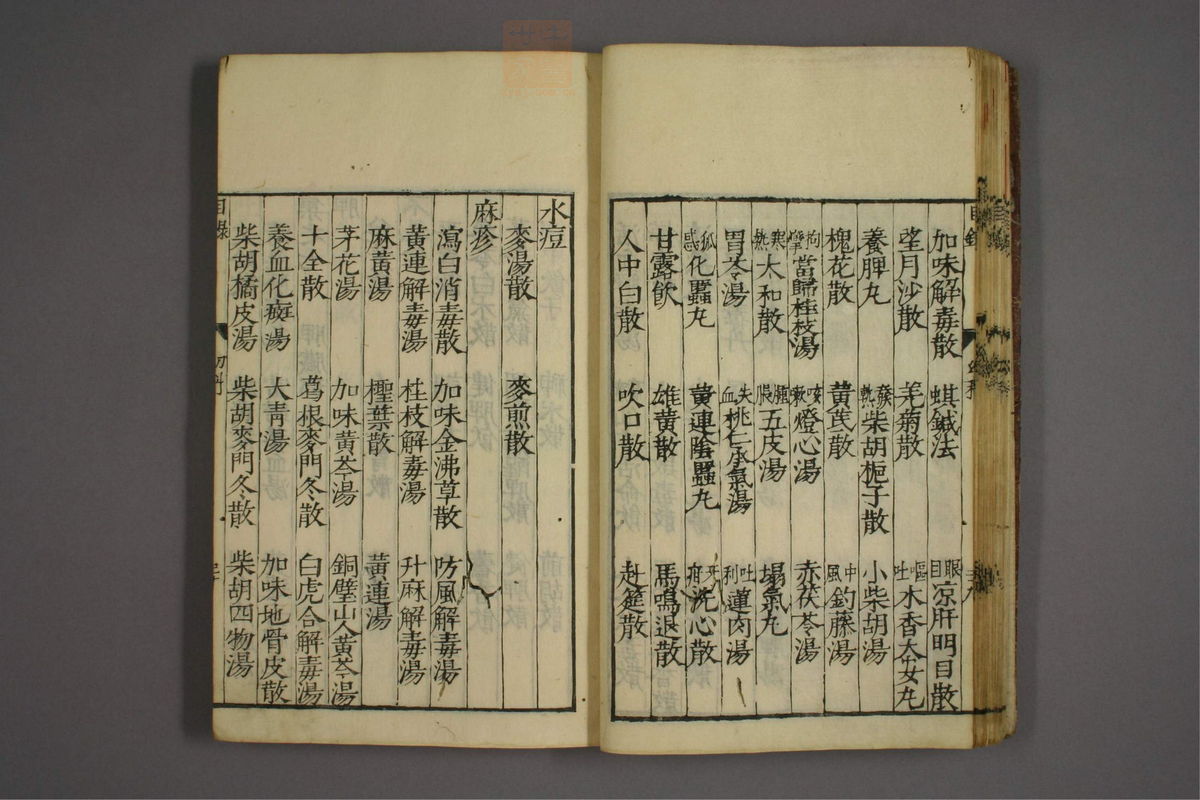 加味解毒散 蜞鍼法 眼目凉肝明目散
望月沙散 羌菊散 嘔吐木香大安丸
養脾丸 發熱柴胡梔子散 小柴胡湯
槐花散 黄芪散 中風釣藤湯
拘攣當歸桂枝湯 咳嗽燈心湯 赤茯苓湯
寒熱太和散 腫脹五皮湯 塌氣丸
胃苓湯 失血桃仁承氣湯 吐利蓮肉湯
狐惑化䘌丸 黄連除䘌丸 牙疳洗心散
甘露飲 雄黄散 馬鳴退散
人中白散 吹口散 赴筵散
水痘
麥湯散 麥煎散
麻疹
瀉白消毒散 加味金沸草散 防風解毒湯
黄連解毒湯 桂枝解毒湯 升麻解毒湯
麻黄湯 檉葉散 黄連湯
茅花湯 加味黄芩湯 銅壁山人黄芩湯
十全散 葛根麥門冬散 白虎合解毒湯
養血化癍湯 大青湯 加味地骨皮散
柴胡橘皮湯 柴胡麥門冬散 柴胡四物湯
目錄